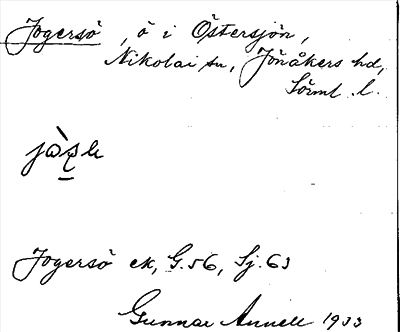 Jogersö, ö i Östersjön,
Nikolai sn, Jönåkers hd,
Sörml. l.
Jogersö ek, G.56, Sj.63
Gunnar Annell 1933